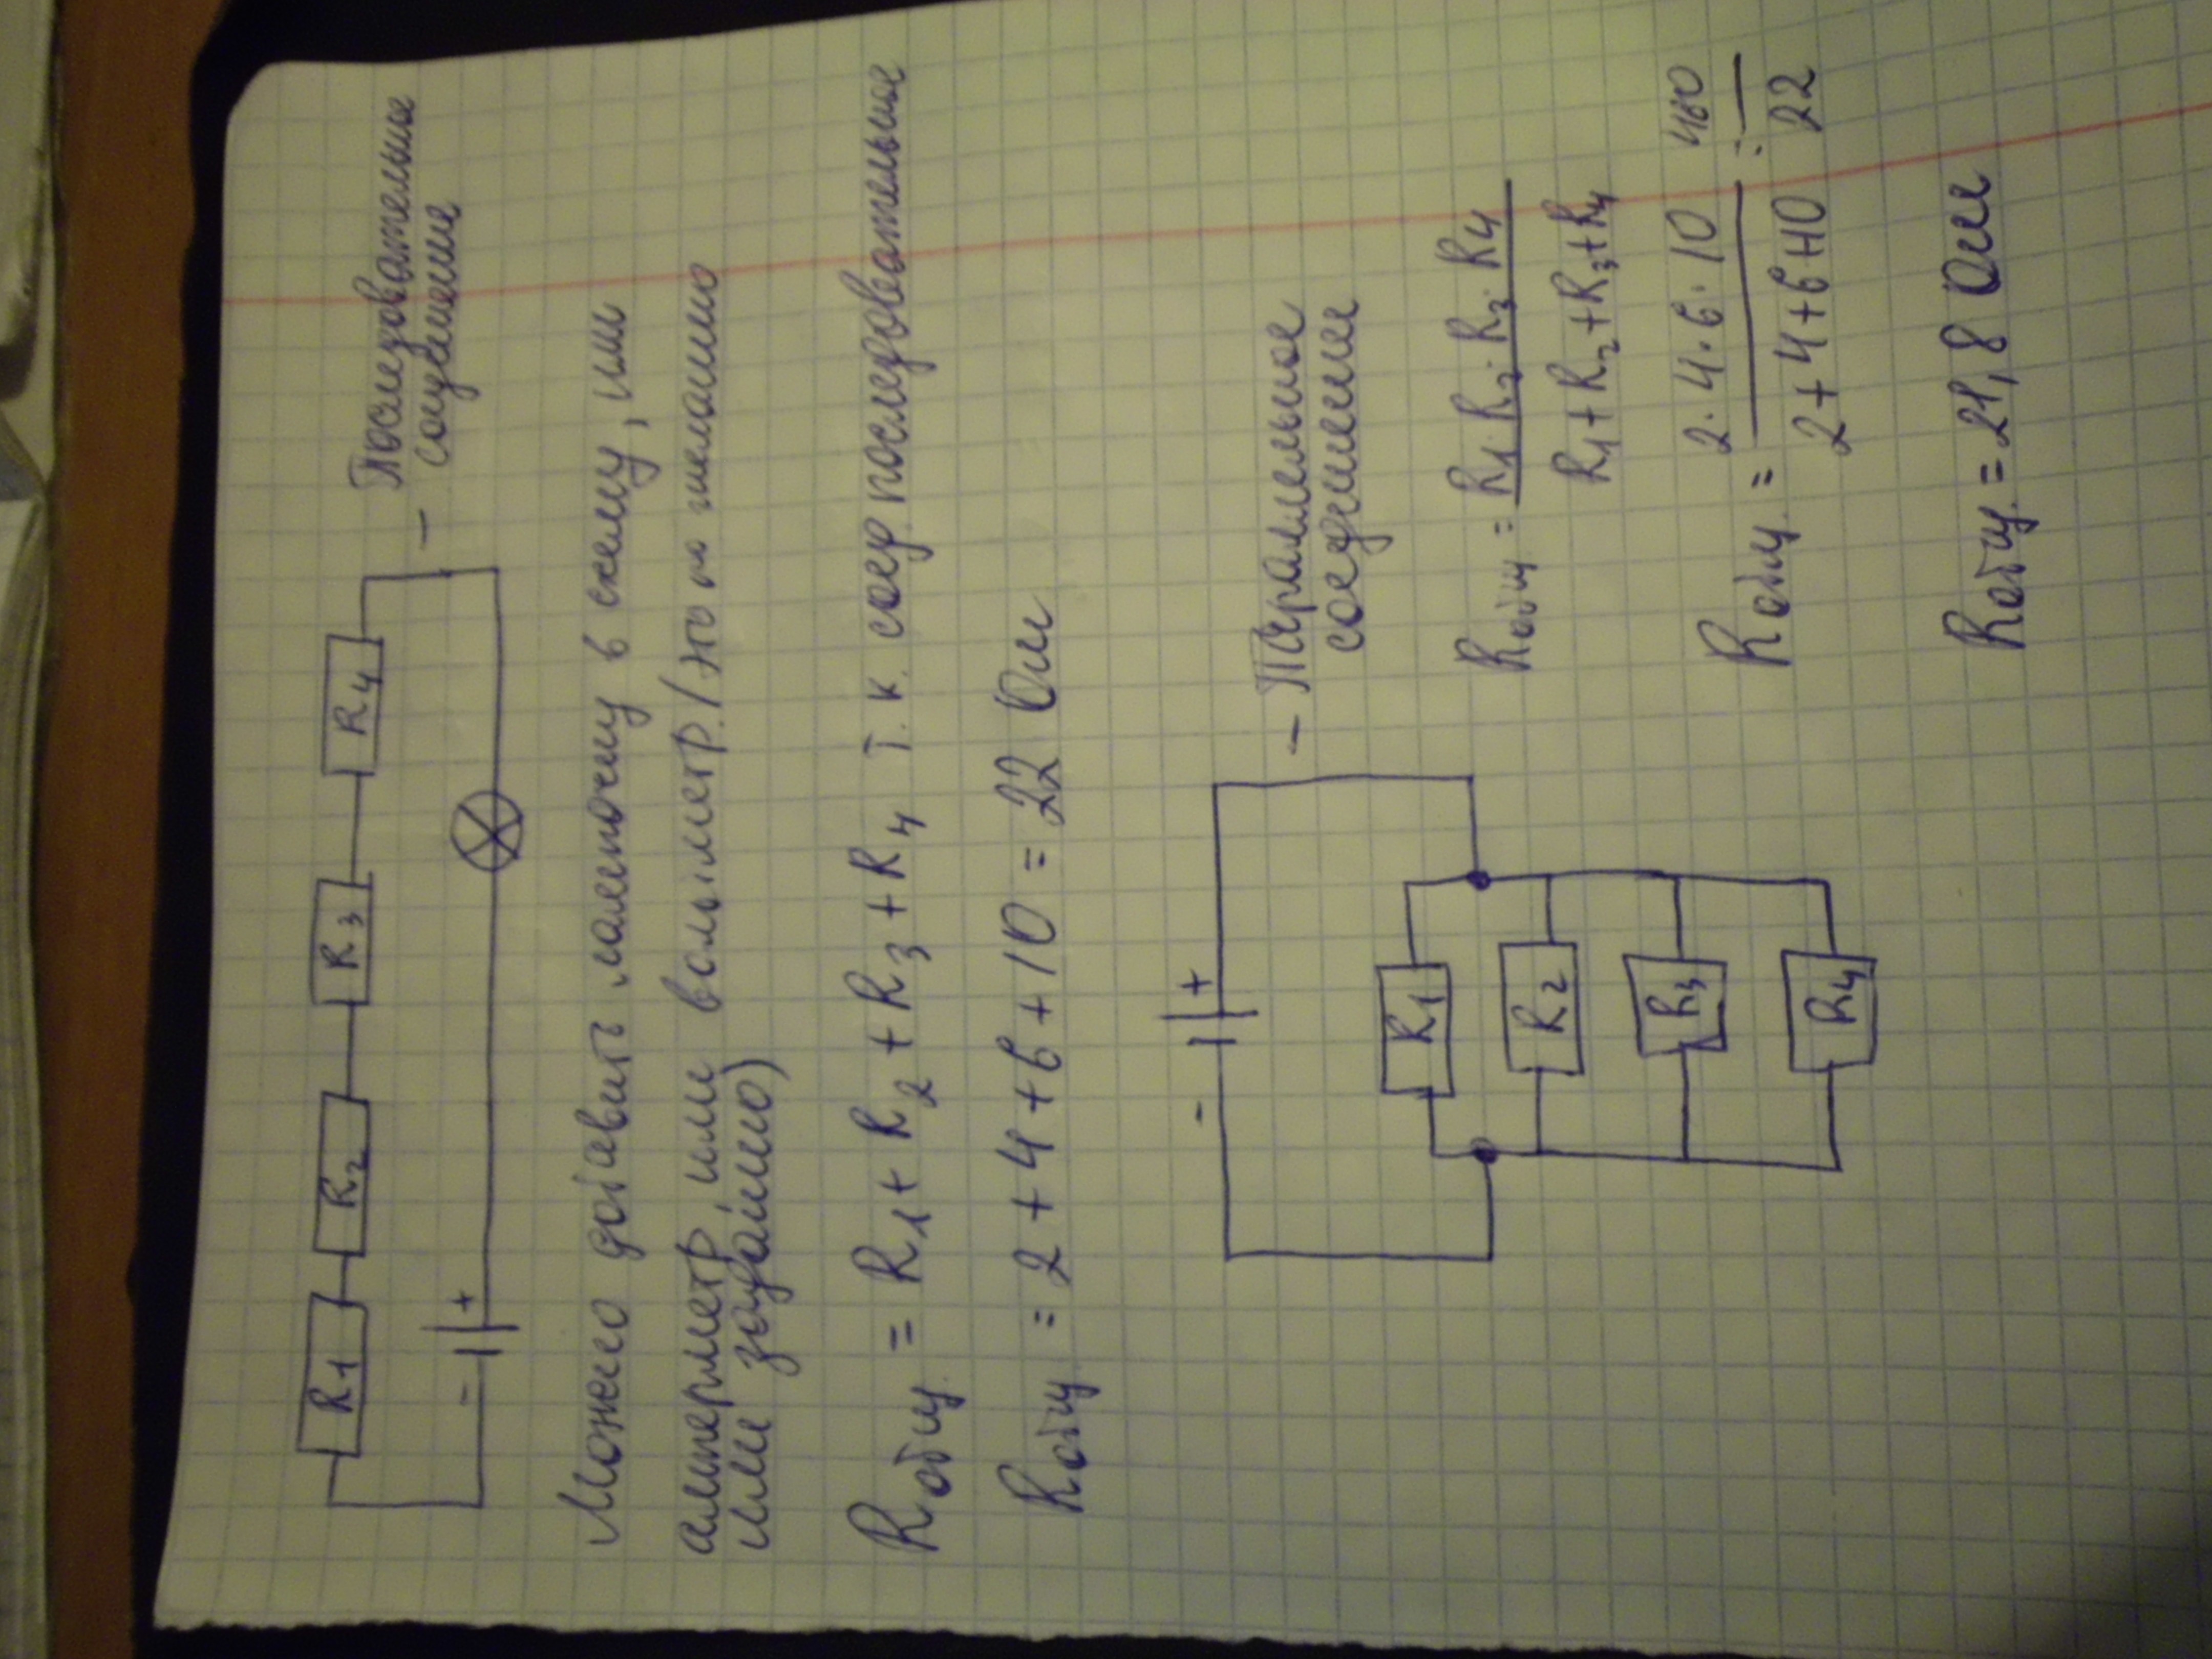 R1 R2 R3 R4
– Последовательное
соединение
– +
Можно добавить лампочку в схему, или
амперметр, или вольтметр. (это по желанию
или заданию)
Rобщ. = R1 + R2 + R3 + R4 т.к. соед. последовательное
Rобщ. = 2 + 4 + 6 + 10 = 22 Ом
– +
– Паралельное
соединение
R1
R2
R3
R4
Rобщ = R1·R2·R3·R4
R1+R2+R3+R4
Rобщ. = 2·4·6·10 = 480
2+4+6+10 22
Rобщ. = 21,8 Ом